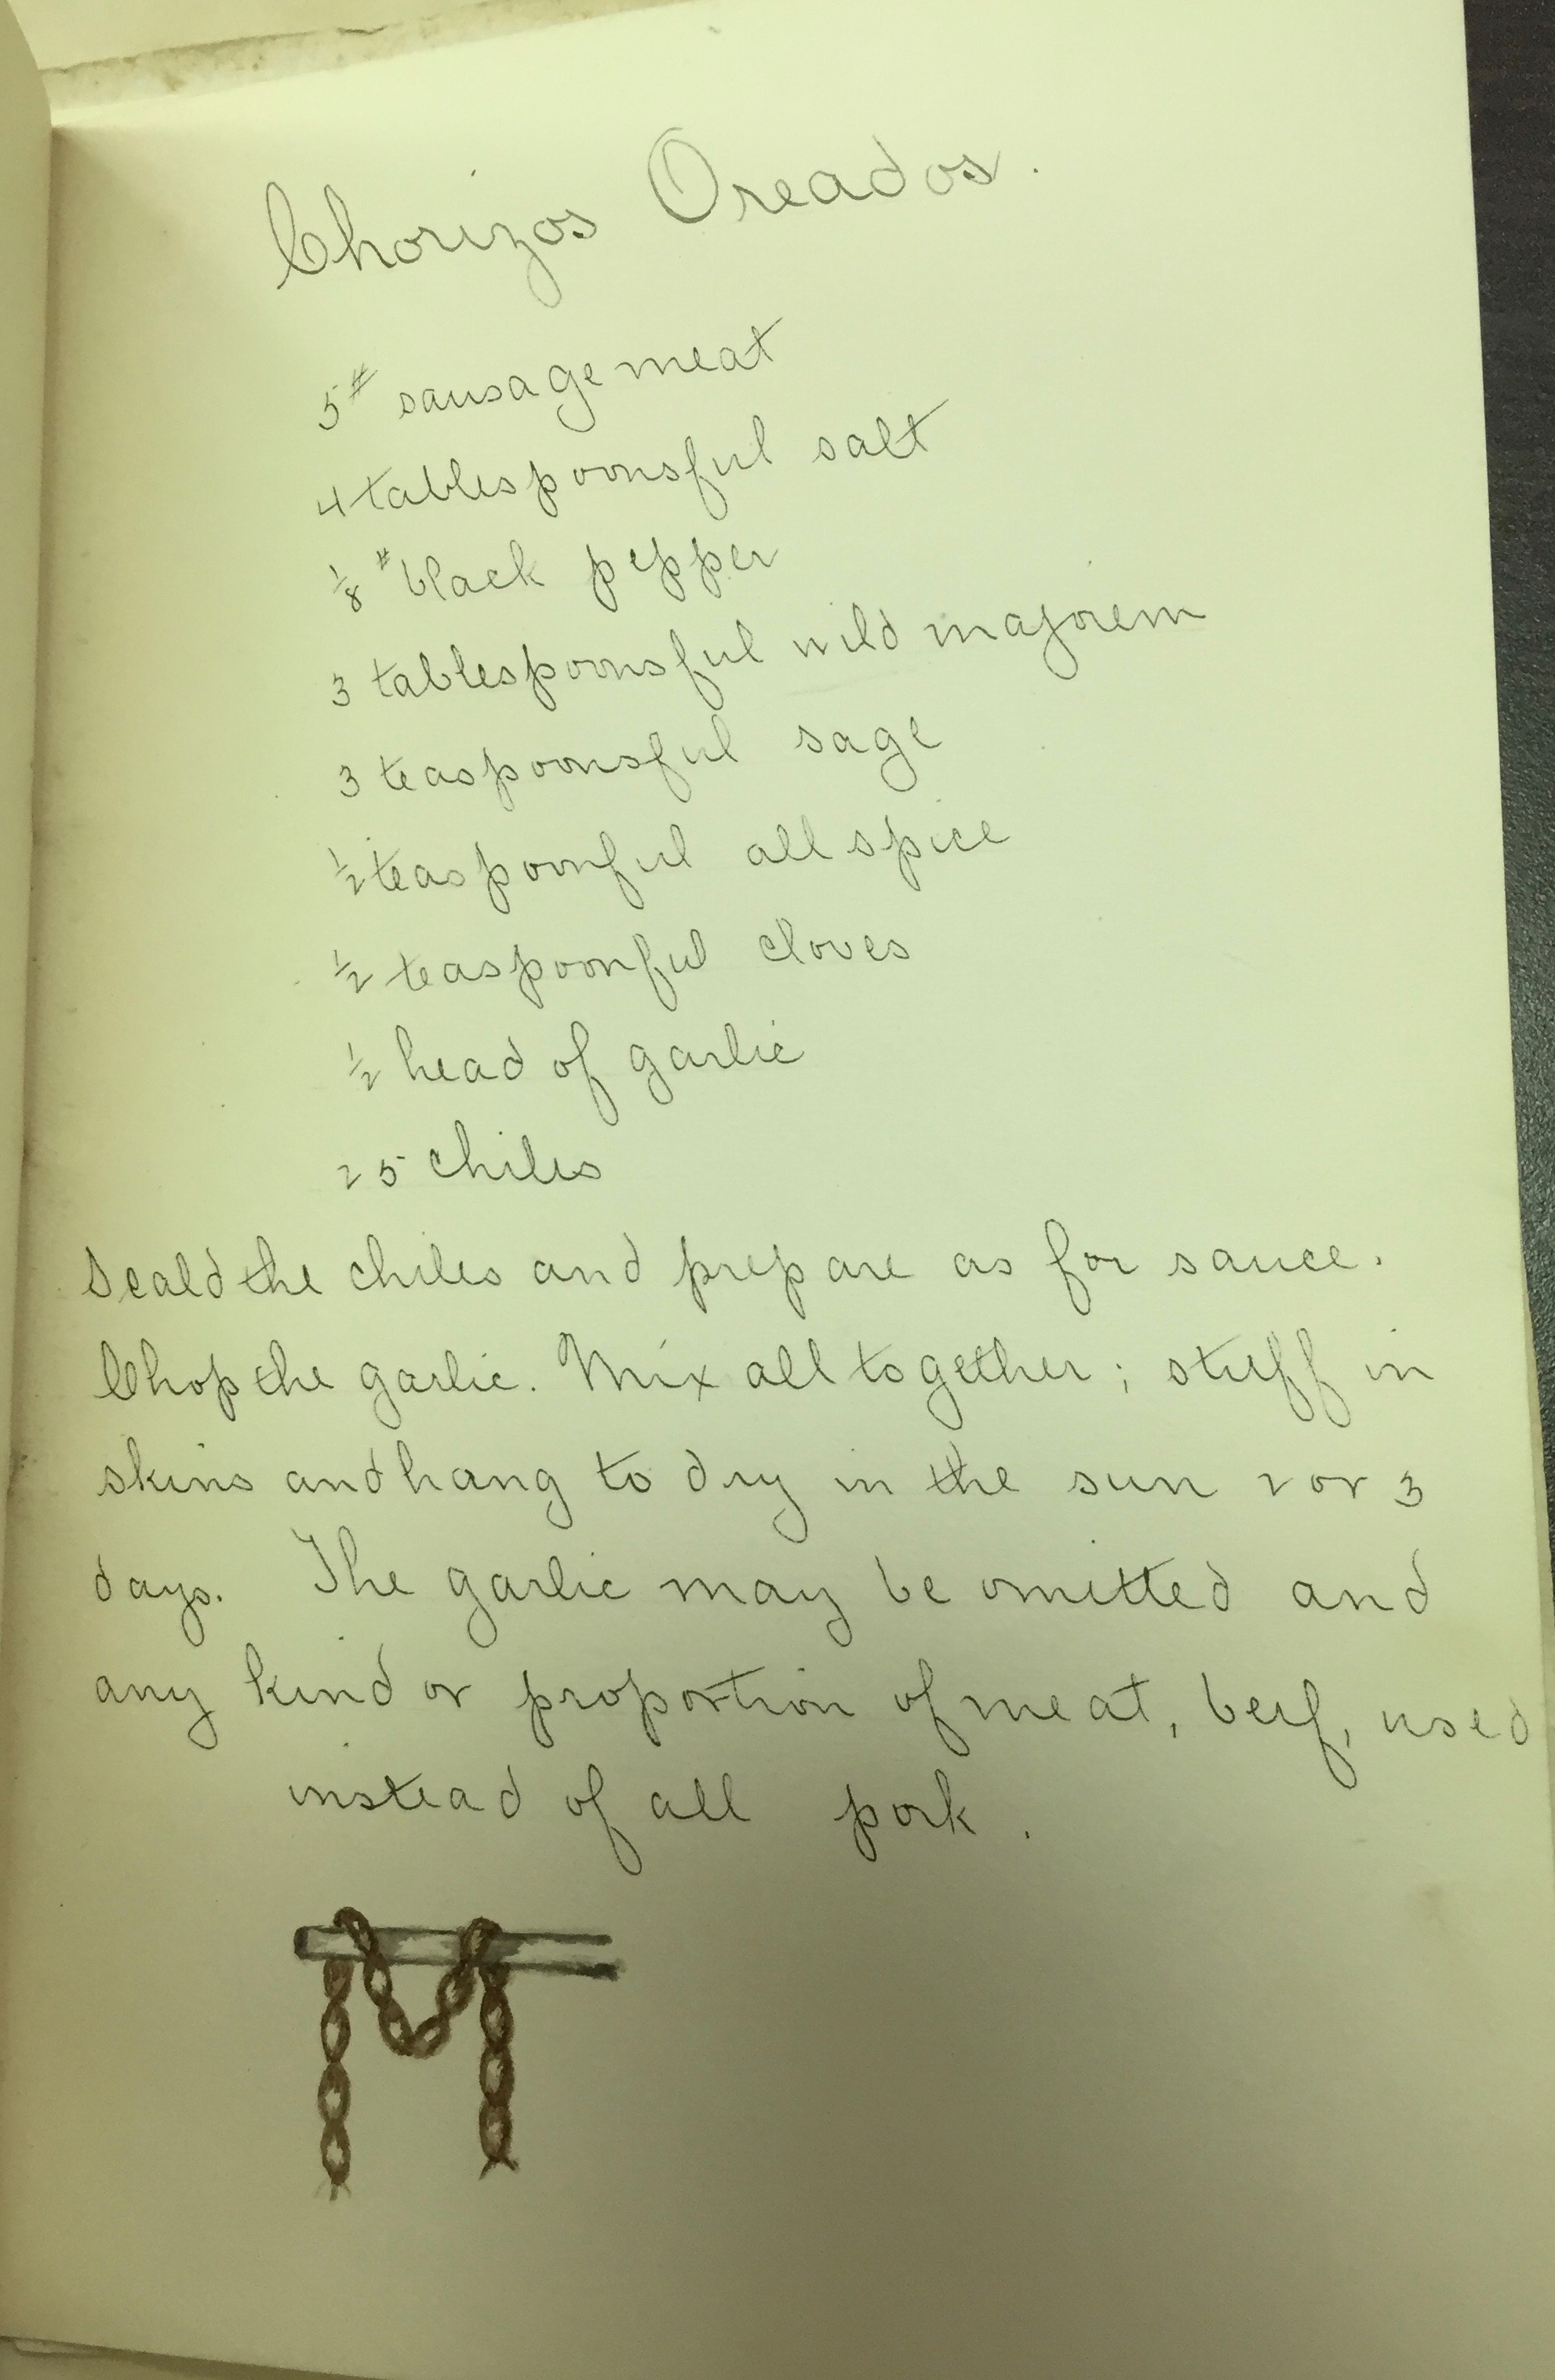 Chorizos Oreados.
5# sausage meat
4 tablespoonsful salt
1/8 # black pepper
3 tablespoonsful wild majorem
3 teaspoonsful sage
1/2 teaspoonful all spice
1/2 teaspoonful cloves
1/2 head of garlic
25 chiles
Scald the chiles and prepare as for sauce.
Chop the garlic. Mix all together; stuff in
skins and hang to dry in the sun 2 or 3
days. The garlic may be omitted and
any kind or proportion of meat, beef, used
instead of all pork.